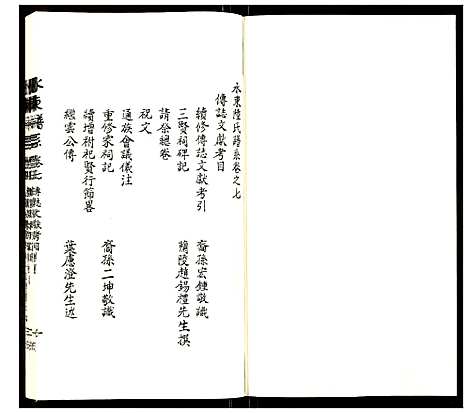 永東陸氏譜系卷之七
傳誌文獻考目
續修傳誌文獻考引 裔孫宏鍾敬識
三賢祠碑記 蘭陵趙錫禮先生撰
請祭總卷
祝文
通族會議儀注
重修家祠記 裔孫二坤敬識
續增樹祀賢行節畧
繼雲公傳 葉慮澄先生述